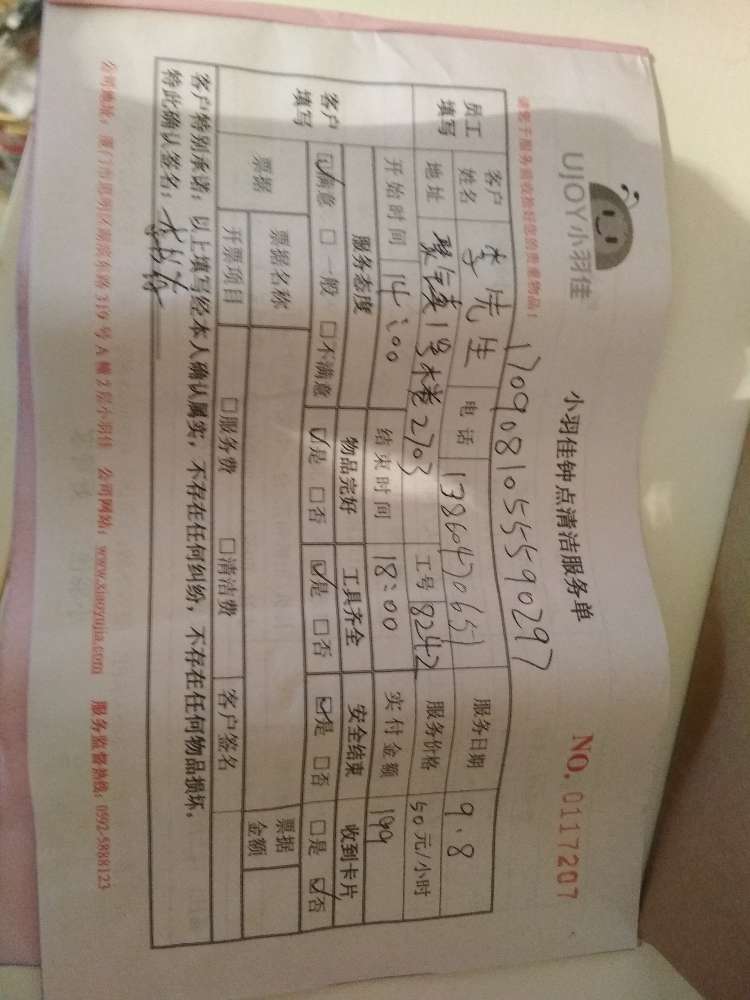 UJOY小羽佳
小羽佳钟点清洁服务单
NO. 0117207
请您于服务前收拾好您的贵重物品！
17090810555590297
员工填写 客户姓名 李先生 电话 13860470651 服务日期 9.8
地址 聚气真1号木卷2703 工号 8242 服务价格 50元/小时
开始时间 14:00 结束时间 18:00 实付金额 199
客户填写 服务态度 物品完好 工具齐全 安全结束 收到卡片
☑满意 □一般 □不满意 ☑是 □否 ☑是 □否 ☑是 □否 □是 ☑否
票据 票据名称 票据金额
开票项目 □服务费 □清洁费 客户签名
客户特别承诺：以上填写经本人确认属实，不存在任何纠纷，不存在任何物品损坏，
特此确认签名：
公司地址：厦门市思明区湖滨东路319号A幢2层小羽佳 公司网站：www.xiaoyujia.com 服务监督热线：0592-5888123